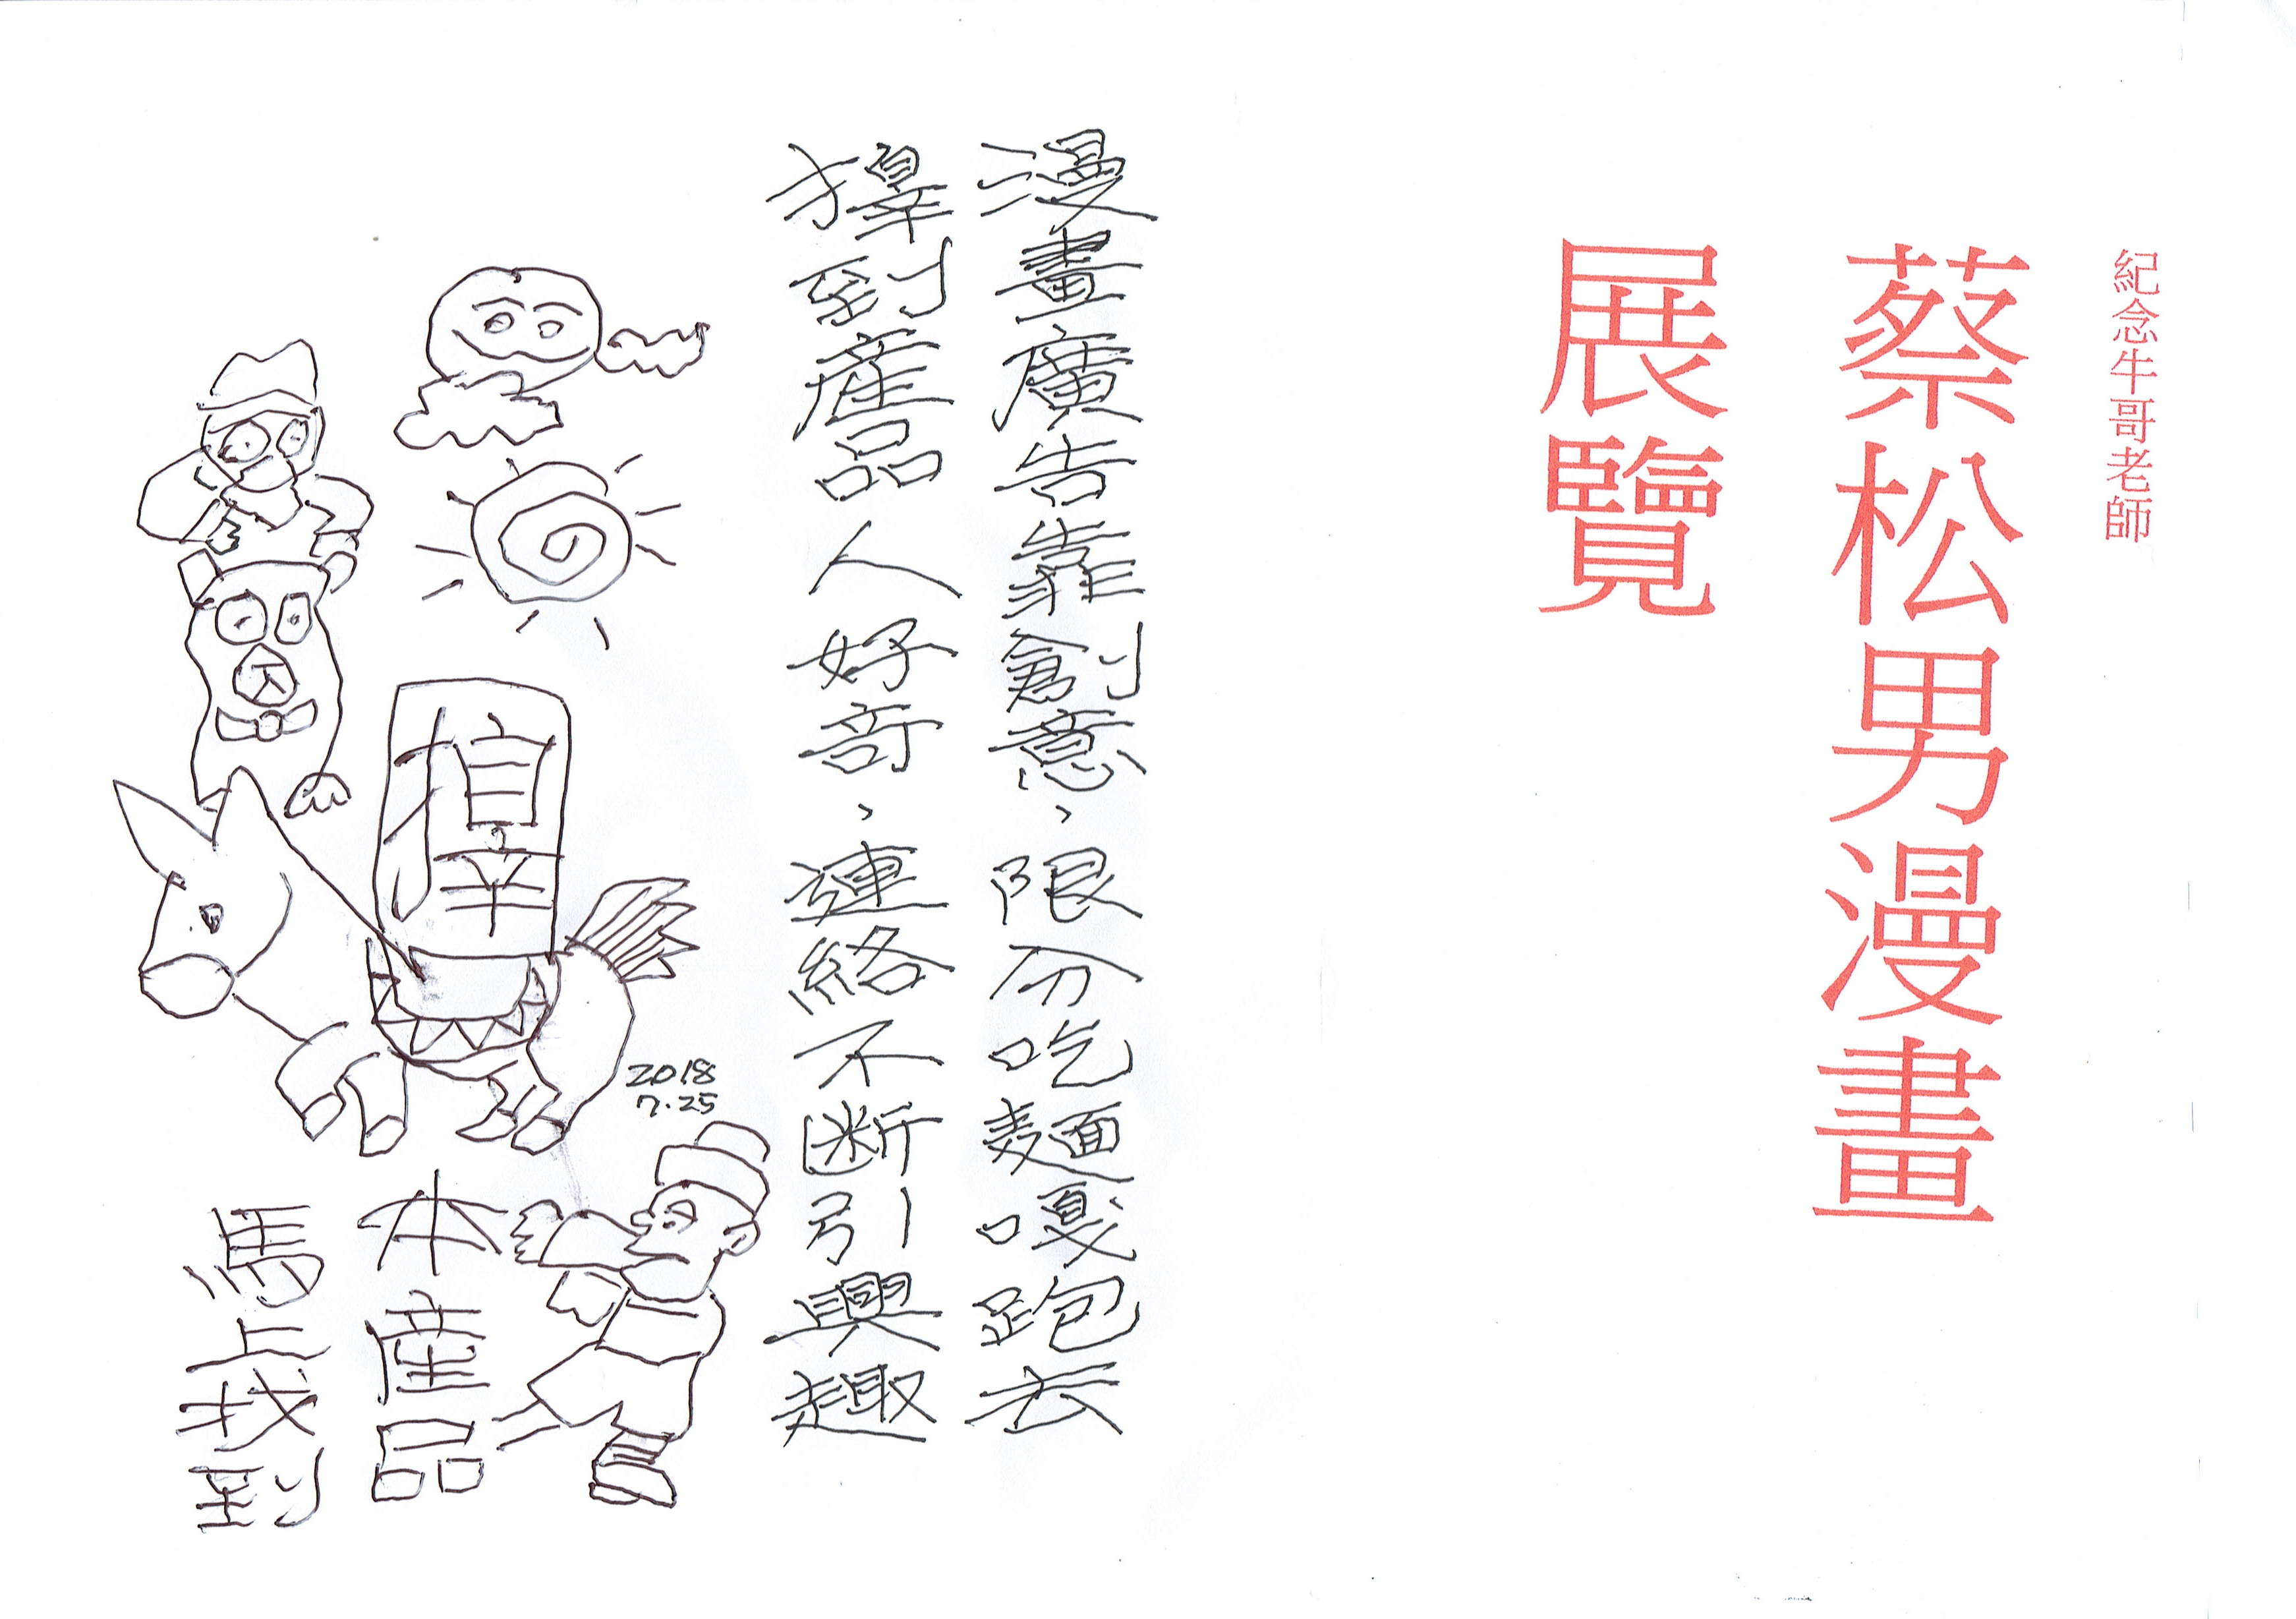 紀念牛哥老師
蔡松男漫畫
展覽
漫畫廣告靠創意、限分吃麵嘎跑去
到産品人好奇、連絡不断引興趣
2018
7.25
本産品
馬上找到